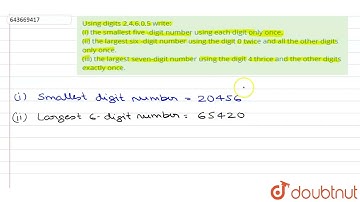 643669417
Using digits 2,4,6,0,5 write:
(I) the smallest five -digit number using each digit only once.
(II) the largest six -digit number using the digit 0 twice and all the other digits
only once.
(III) the largest seven-digit number using the digit 4 thrice and the other digits
exactly once.
(i) Smallest digit number = 20456
(ii) Largest 6-digit number = 65420
doubtnut